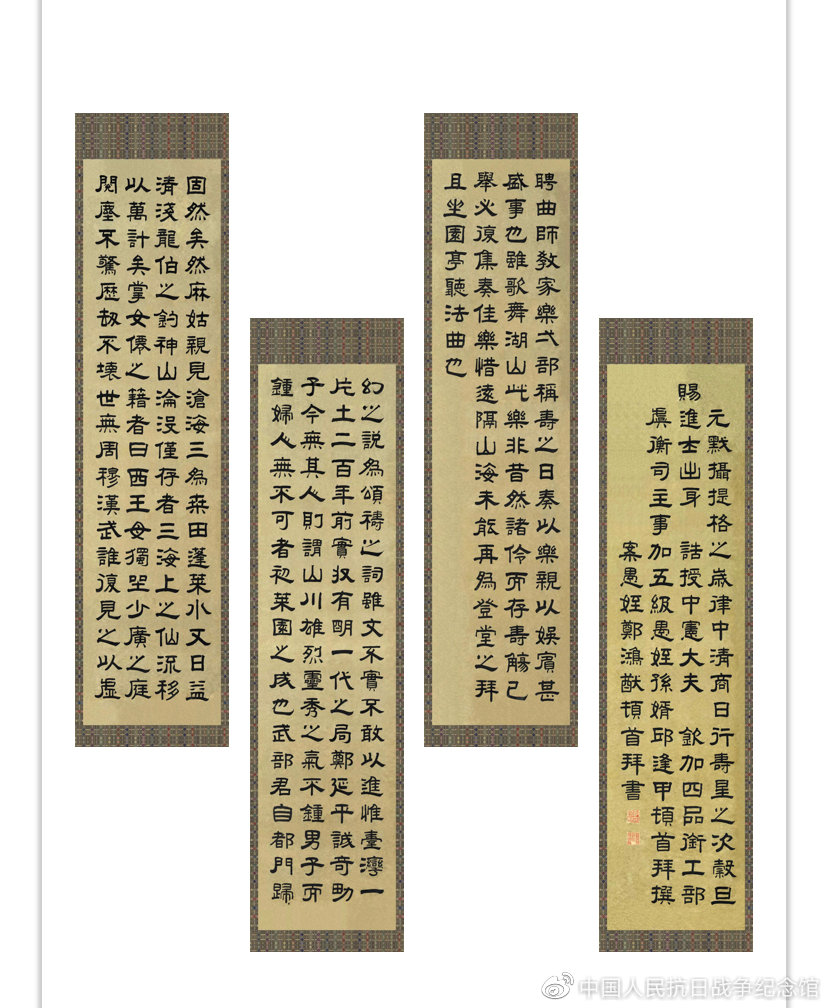 固然矣然麻姑親見滄海三為桑田蓬萊水又日益
清淺龍伯之釣神山淪沒僅存者三海上之仙流移
以萬計矣掌女僊之籍者曰西王母獨坐少廣之庭
閱塵不驚歷劫不壞世無周穆漢武誰復見之以虛
幻之說為頌禱之詞雖文不實不敢以進惟臺灣一
片土二百年前實収有明一代之局鄭延平誠奇男
子今無其人則謂山川雄烈靈秀之氣不鍾男子而
鍾婦人無不可者初萊園之成也武部君自都門歸
聘曲師教家樂弍部稱壽之日奏以樂親以娛賓甚
盛事也雖歌舞湖山此樂非昔然諸伶而存壽觴已
舉必復集奏佳樂惜遠隔山海未能再為登堂之拜
且坐園亭聽法曲也
元黓攝提格之歲律中清商日行壽星之次穀旦
賜進士出身 誥授中憲大夫 欽加四品銜工部
虞衡司主事加五級愚姪孫婿邱逢甲頓首拜撰
案愚姪鄭鴻猷頓首拜書
中国人民抗日战争纪念馆